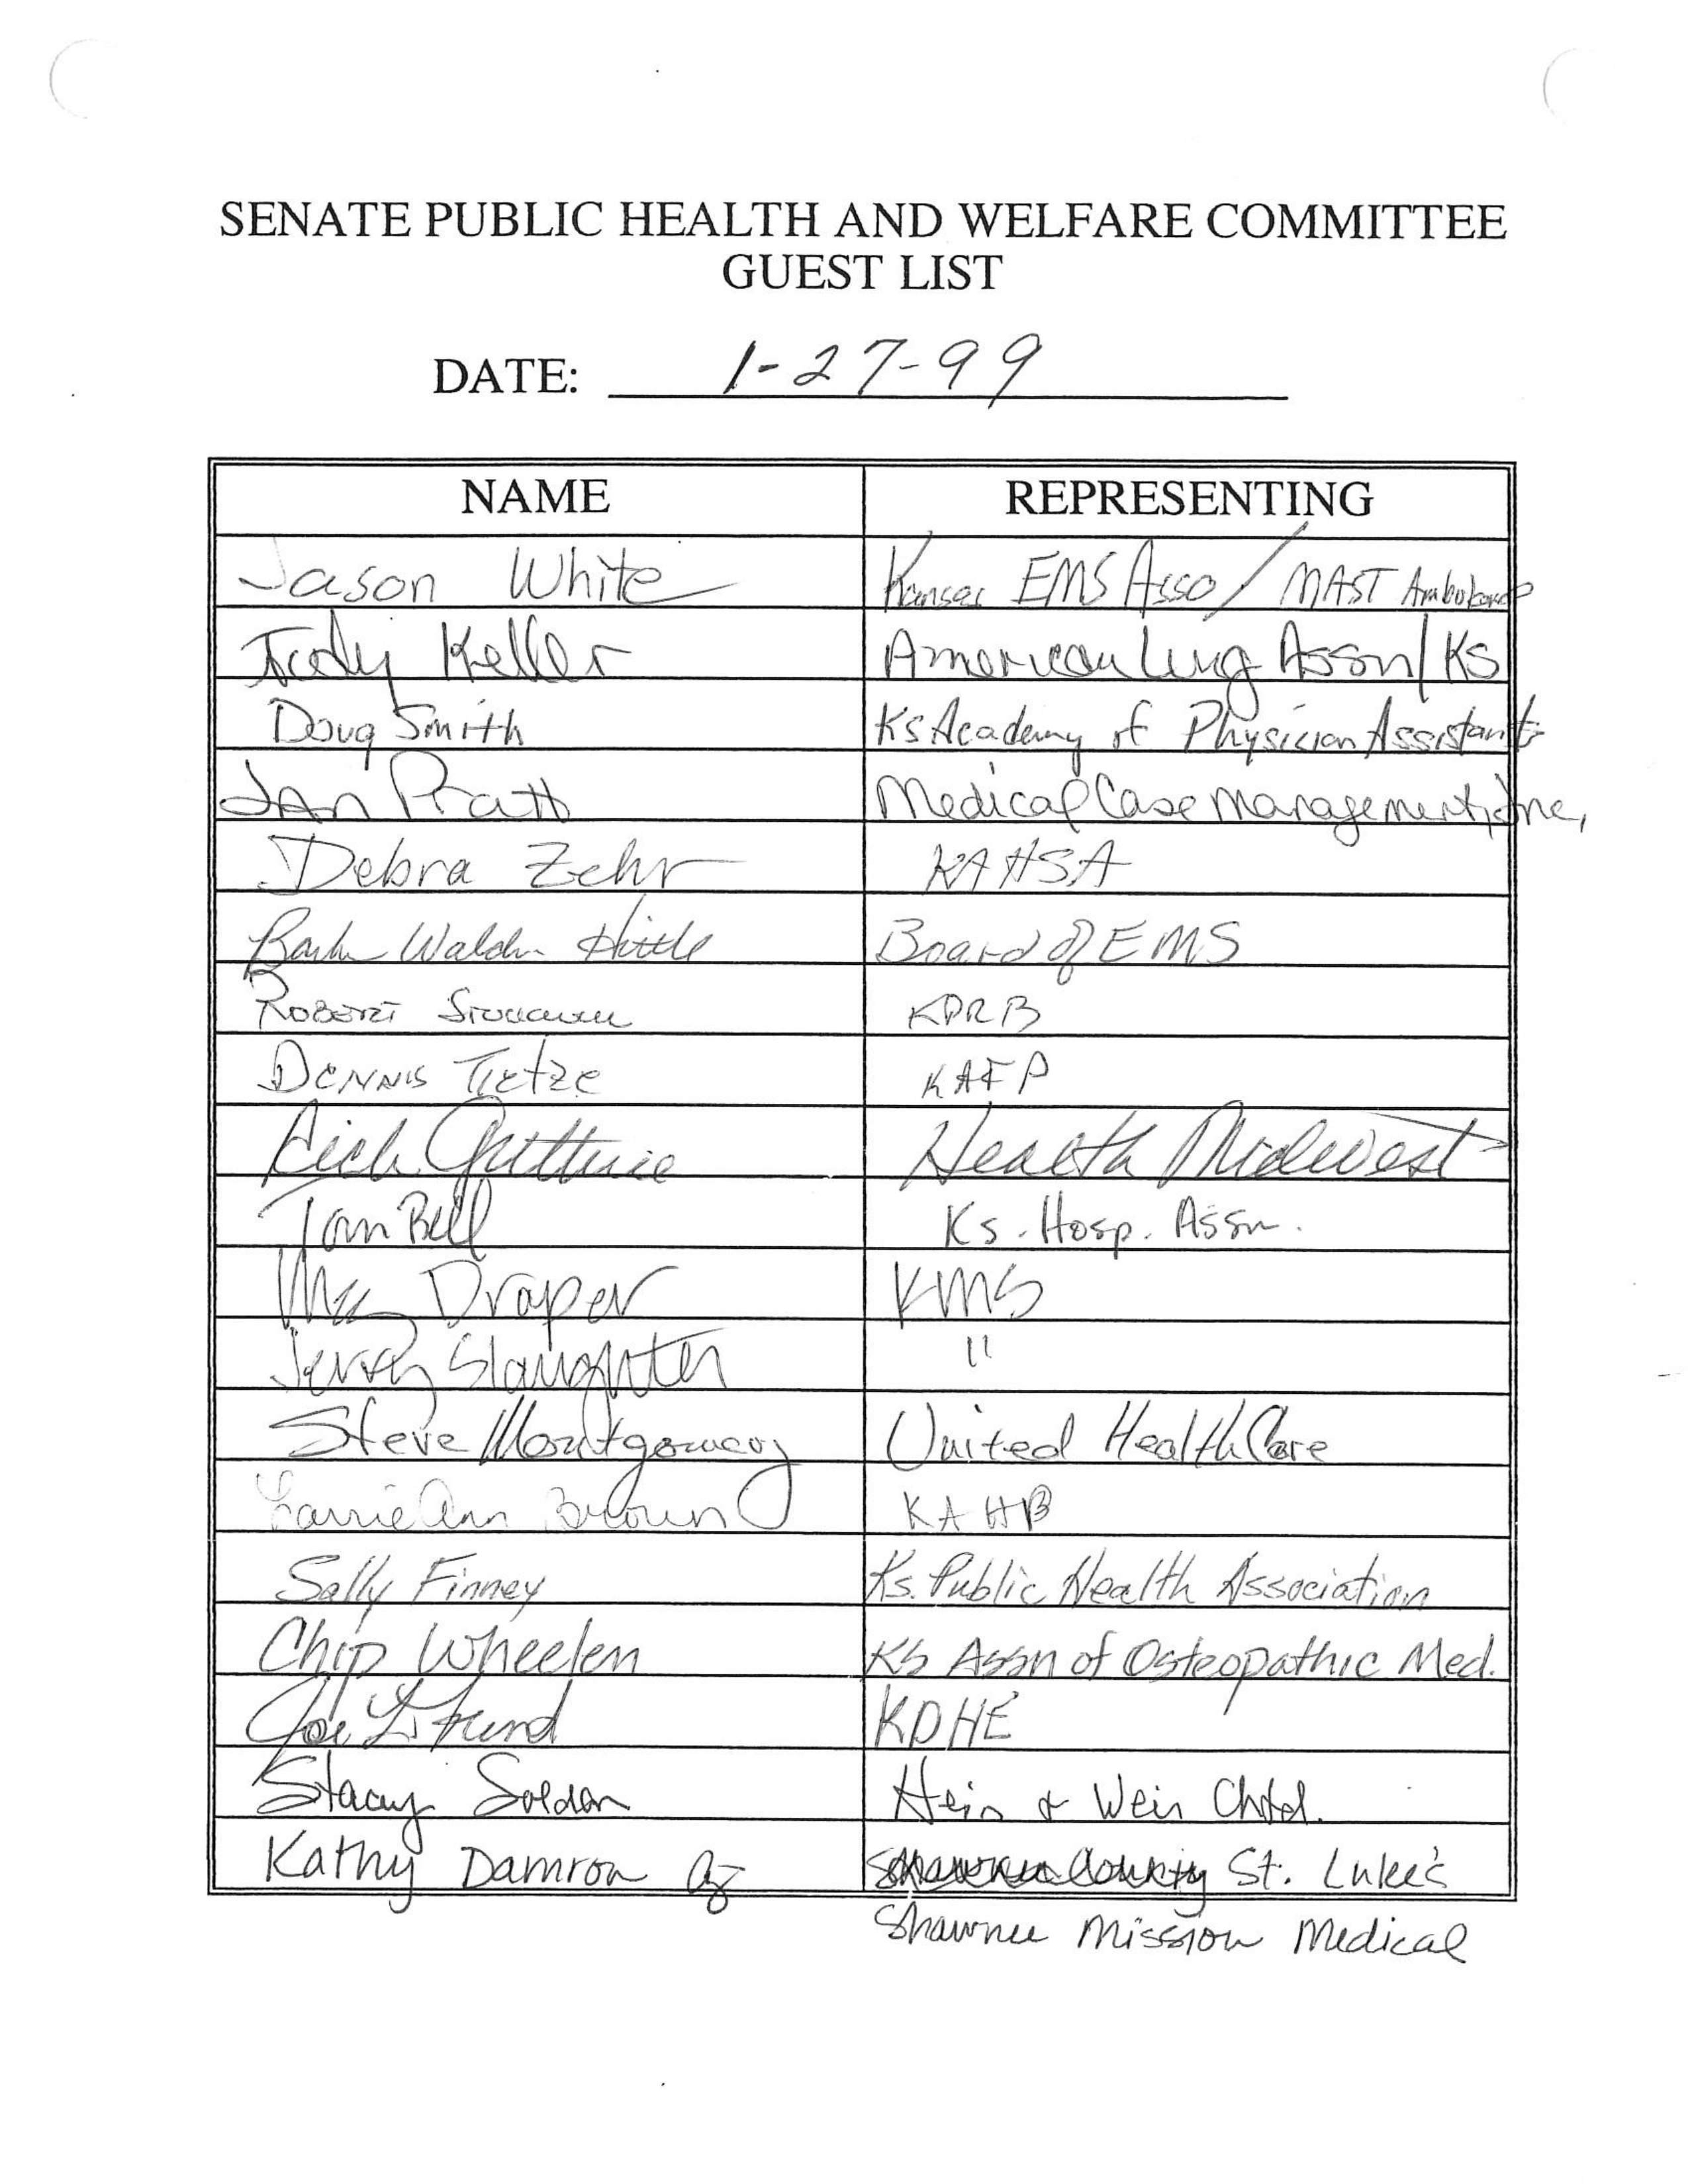 SENATE PUBLIC HEALTH AND WELFARE COMMITTEE
GUEST LIST
DATE: 1-27-99
NAME REPRESENTING
Jason White Kansas EMS Asso / MAST Ambulance
Judy Keller American Lung Assn/KS
Doug Smith Ks Academy of Physician Assistants
Jan Pratt Medical Case Management, Inc,
Debra Zehr KAHSA
Hittle Board of EMS
Robert KDRB
Dennis Tietze KAFP
Rich Guthrie Health Midwest
Tom Bell Ks. Hosp. Assn.
Meg Draper KMS
Jerry Slaughter "
Steve Montgomery United HealthCare
Larrie Ann Brown KAHP
Sally Finney Ks. Public Health Association
Chip Wheelen KS Assn of Osteopathic Med.
Joe KDHE
Stacey Soldan Hein & Weir Chtd.
Kathy Damron St. Luke's
Shawnee Mission Medical